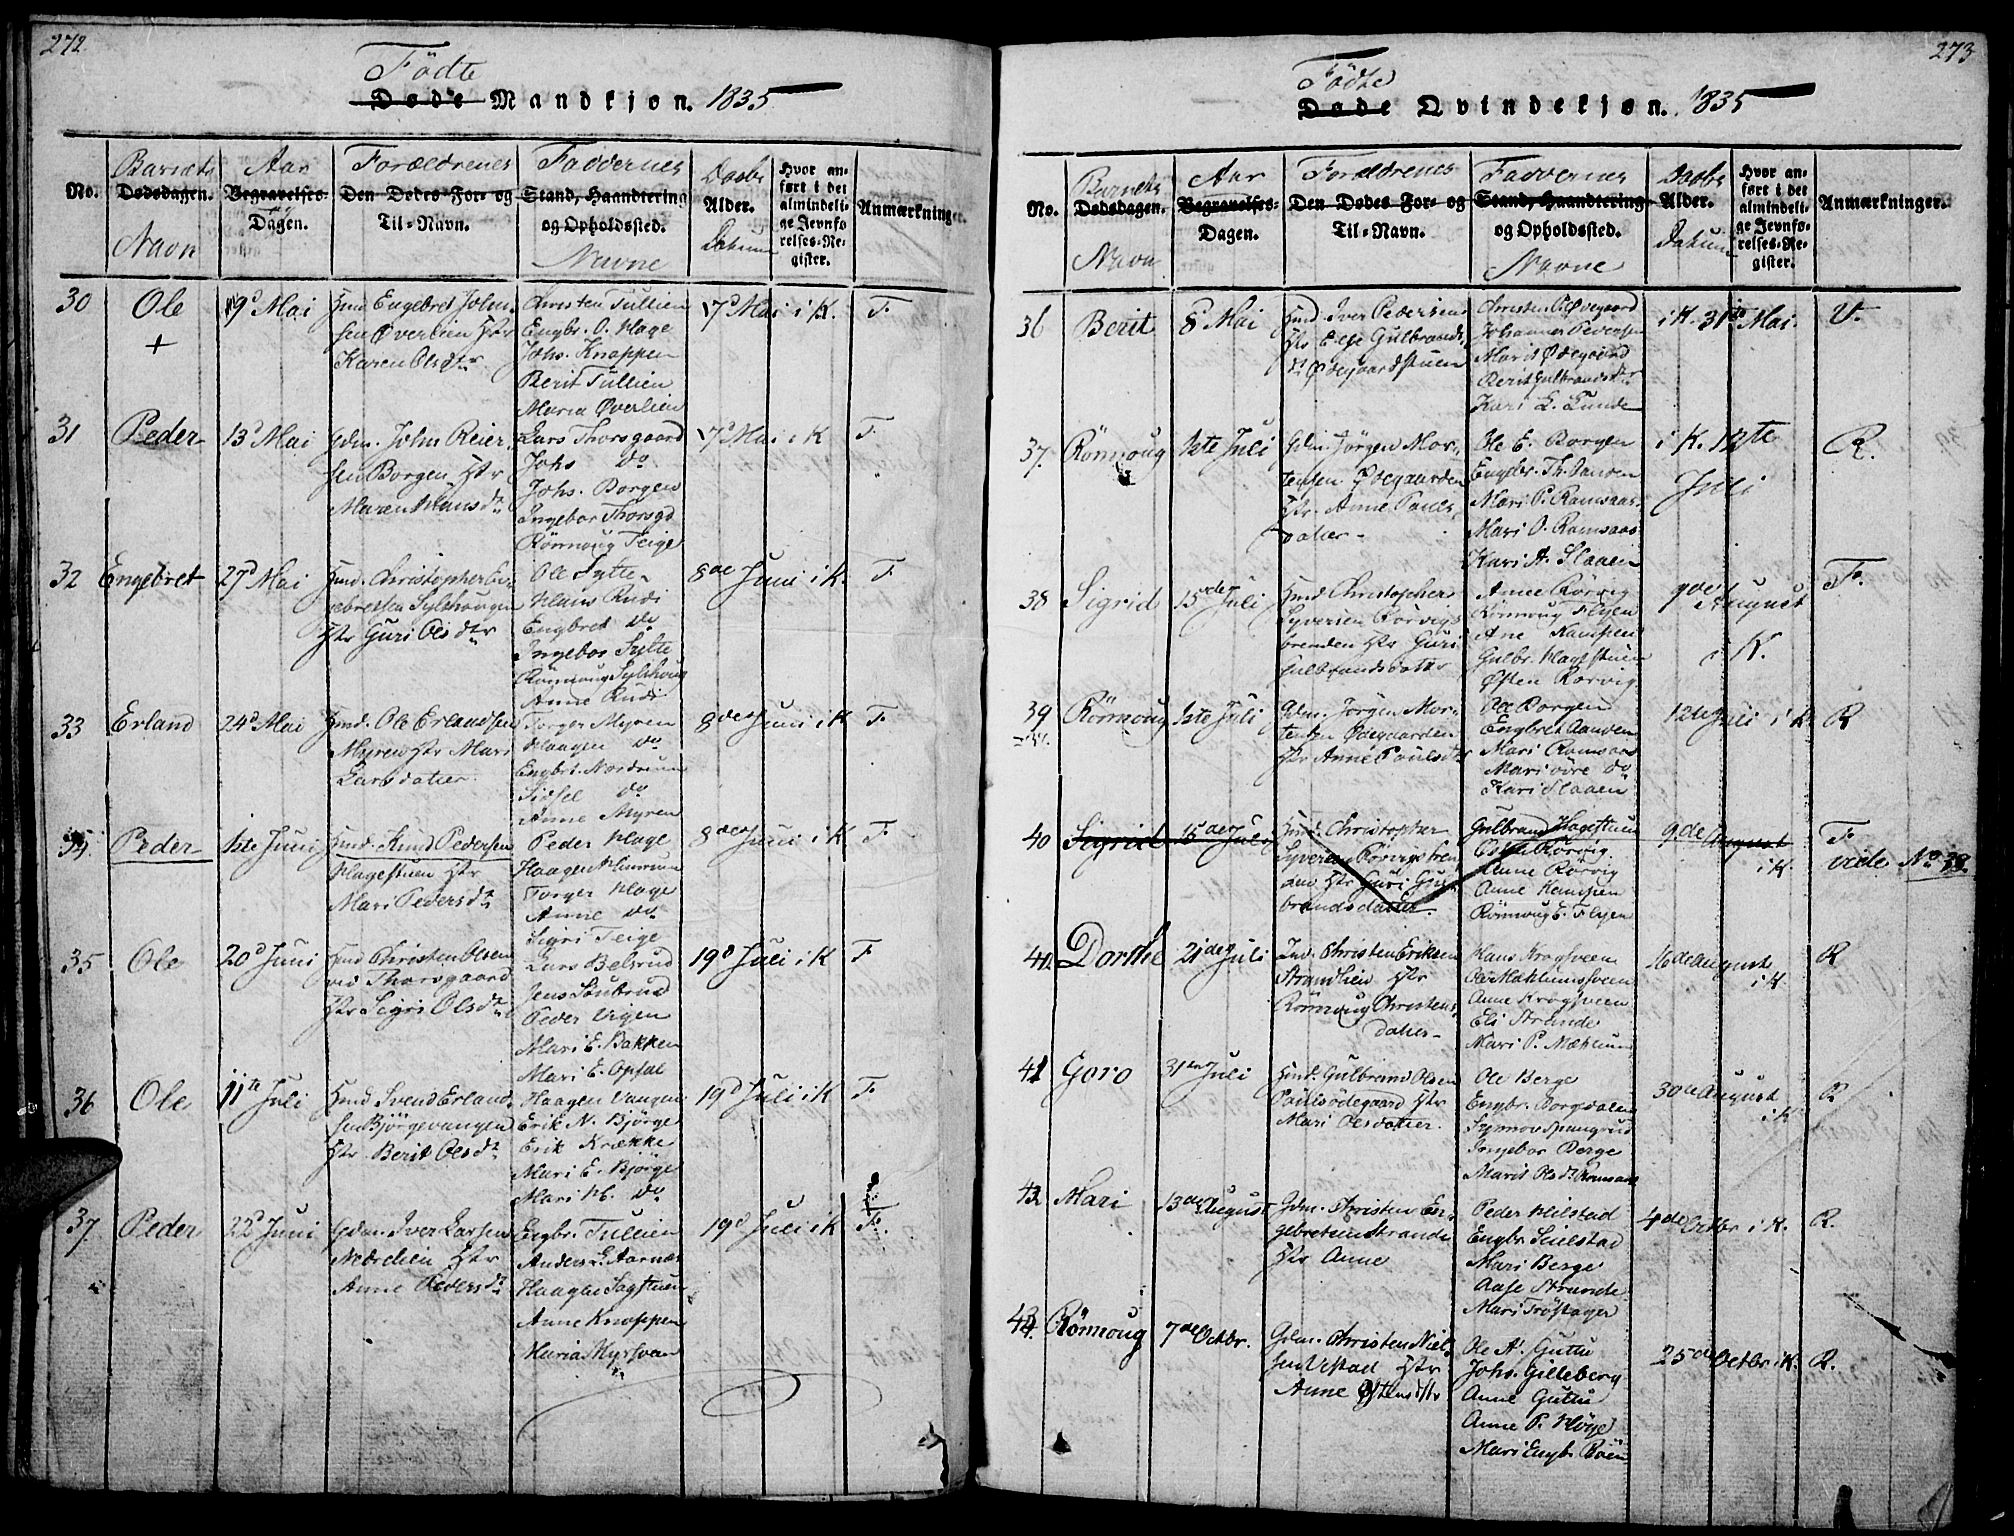 272
Födte
Döde Mandkjøn. 1835
No.
Barnets
Dødsdagen.
Navn
Aar
Begravelses-
og
Dagen.
Forældrenes
Den Dødes For- og
Til-Navn.
Faddernes
Stand, Haandtering
og Opholdssted.
Navne
Daabs
Alder.
Datum
Hvor an-
ført i det
almindeli-
ge Jevnfø-
relses-Re-
gister.
Anmærkninger.
30
Ole
+
9d Mai
Huusd Engebret John-
sen Øverlien Hstr
Karen Olsdtr
Christen Tullien
Engbr. O. Hage
Johs. Knappen
Berit Tullien
Maria Øverlien
7d Mai i K.
F.
31
Peder
13d Mai
Gdm. John Reier-
sen Borgen Hstr
Maren Hansdr
Lars Thorsgaard
Johs do
Johs. Borgen
Ingebor Thorsgd
Rönnoug Teige
7d Mai i K
F.
32
Engebret
27d Mai
Huusd Christopher En-
gebretsen Sylthougen
Hstr Guri Olsdtr
Ole Sylte
Hans Rudi
Engbret do
Ingebor Sylte
Rönnoug Sylthoug
Anne Rudi
8de Juni i K.
F.
33
Erland
24d Mai
Huusd. Ole Erlandsen
Myren Hstr Mari
Larsdatter.
Torger Myren
Haagen do
Engbret. Nordrum
Sidsel do
Anne Myren
8de Juni i K
F.
34
Peder
1ste Juni
Huusd. Knud Pedersen
Hagestuen Hstr
Mari Pedersdr
Peder Hage
Haagen Hunrum
Torger Hage
Anne do
Sigri Teige
8de Juni i K
F.
35
Ole
20d Juni
Huusd Christen Olsen
ved Thorsgaard
Hstr Sigri Olsdr
Lars Belsrud
Jens Sönbrud
Peder Vigen
Mari E. Bakken
Mari E. Opfal
19d Juli i K
F
36
Ole
11te Juli
Huusd Svend Erland-
sen Bjørgevangen
Hstr. Berit Olsdr
Haagen Vangen
Erik N. Bjørge
Erik Krække
Mari E. Bjørge
Mari H. do
19d Juli i K
F.
37
Peder
22d Juni
Gdm. Iver Larsen
Nordlien Hstr
Anne Pedersdr
Engbr. Tullien
Anders L. Aarnæs
Haagen Sagstuen
Anne Knappen
Maria Myrsvan
19d Juli i K
F.
273
Födte
Döde Qvindekjøn. 1835
No.
Barnets
Dødsdagen.
Navn
Aar
Begravelses-
Dagen.
Forældrenes
Den Dødes For- og
Til-Navn.
Faddernes
Stand, Haandtering
og Opholdssted.
Navne
Daabs
Alder.
Datum
Hvor an-
ført i det
almindeli-
ge Jevnfø-
relses-Re-
gister.
Anmærkninger.
36
Berit
8d Mai
Huusd. Iver Pedersen
Hstr Else Gulbrands-
dr Ødegaardstuen
Christen P. Ødegaard
Johannes Pedersen
Marit Ødegaard
Berit Gulbrandsdtr
Kari L. Lunde
i K. 31te Mai.
V.
37.
Rönnoug
1ste Juli
Gdm. Jörgen Mor-
tensen Ødegaarden
Hstr. Anne Pauls-
datter
Ole E. Borgen
Engbr. Th. Sanden
Mari P. Ramsaas
Mari O. Ramsaas
Kari A. Slaaen
i K. 12te
Juli
R.
38
Sigrid
15de Juli
Huusd Christopher
Syversen Rörvigs
brenden Hstr Guri
Gulbrandsdatter
Anne Rörvig
Rönnoug Flyen
Ane Kampen
Gulbr. Hagestuen
Østen Rörvig
9de August
i K.
F.
39
Rönnoug
1ste Juli
Gdm. Jörgen Mor-
tensen Ødegaarden
Hstr Anne Paulsdtr
Ole Borgen
Engbret Aanden
Mari Ramsaas
Mari övre do
Kari Slaaen
12te Juli i K
R
40
Sigrid
15de Juli
Huusd. Christopher
Syversen Rörvigsbren-
den Hstr Guri Gul-
brandsdatter.
Gulbrand Hagestuen
Østen Rörvig.
Anne Rörvig
Anne Kampen
Rönnoug E. Flyen
9de August
i K.
F.
vide No 38.
40
Dorthe
21de Juli
Ind. Christen Eriksen
Strandlien Hstr
Rönnoug Christens-
datter
Hans Krogsveen
Ole Mæhlumsveen
Anne Krogsveen
Eli Strande
Mari P. Mæhlum
16de August
i K
R
41
Goro
31te Juli
Huusd. Gulbrand Olsen
Paulsødegaard Hstr
Mari Olsdatter.
Ole Berge
Engbr. Borgedalen
Symor Spangrud
Ingebor Berge
Marit Olsdr Ramsaas
30te August
i K
R
42
Mari
13de August
Gdm. Christen En-
gebretsen Strande
Hstr Anne
Peder Heilstad
Engbr. Seilstad
Mari Berge
Aase Strande
Mari Tröstager
4de Octbr i K.
R.
43
Rönnoug
7de Octbr.
Gdm. Christen Niel-
sen Vestad Hstr
Anne Østensdtr
Ole A. Guttu
Johs. Gilleberg
Anne Guttu
Anne P. Höye
Mari Engbr. Röen
25de Octbr i K.
R.